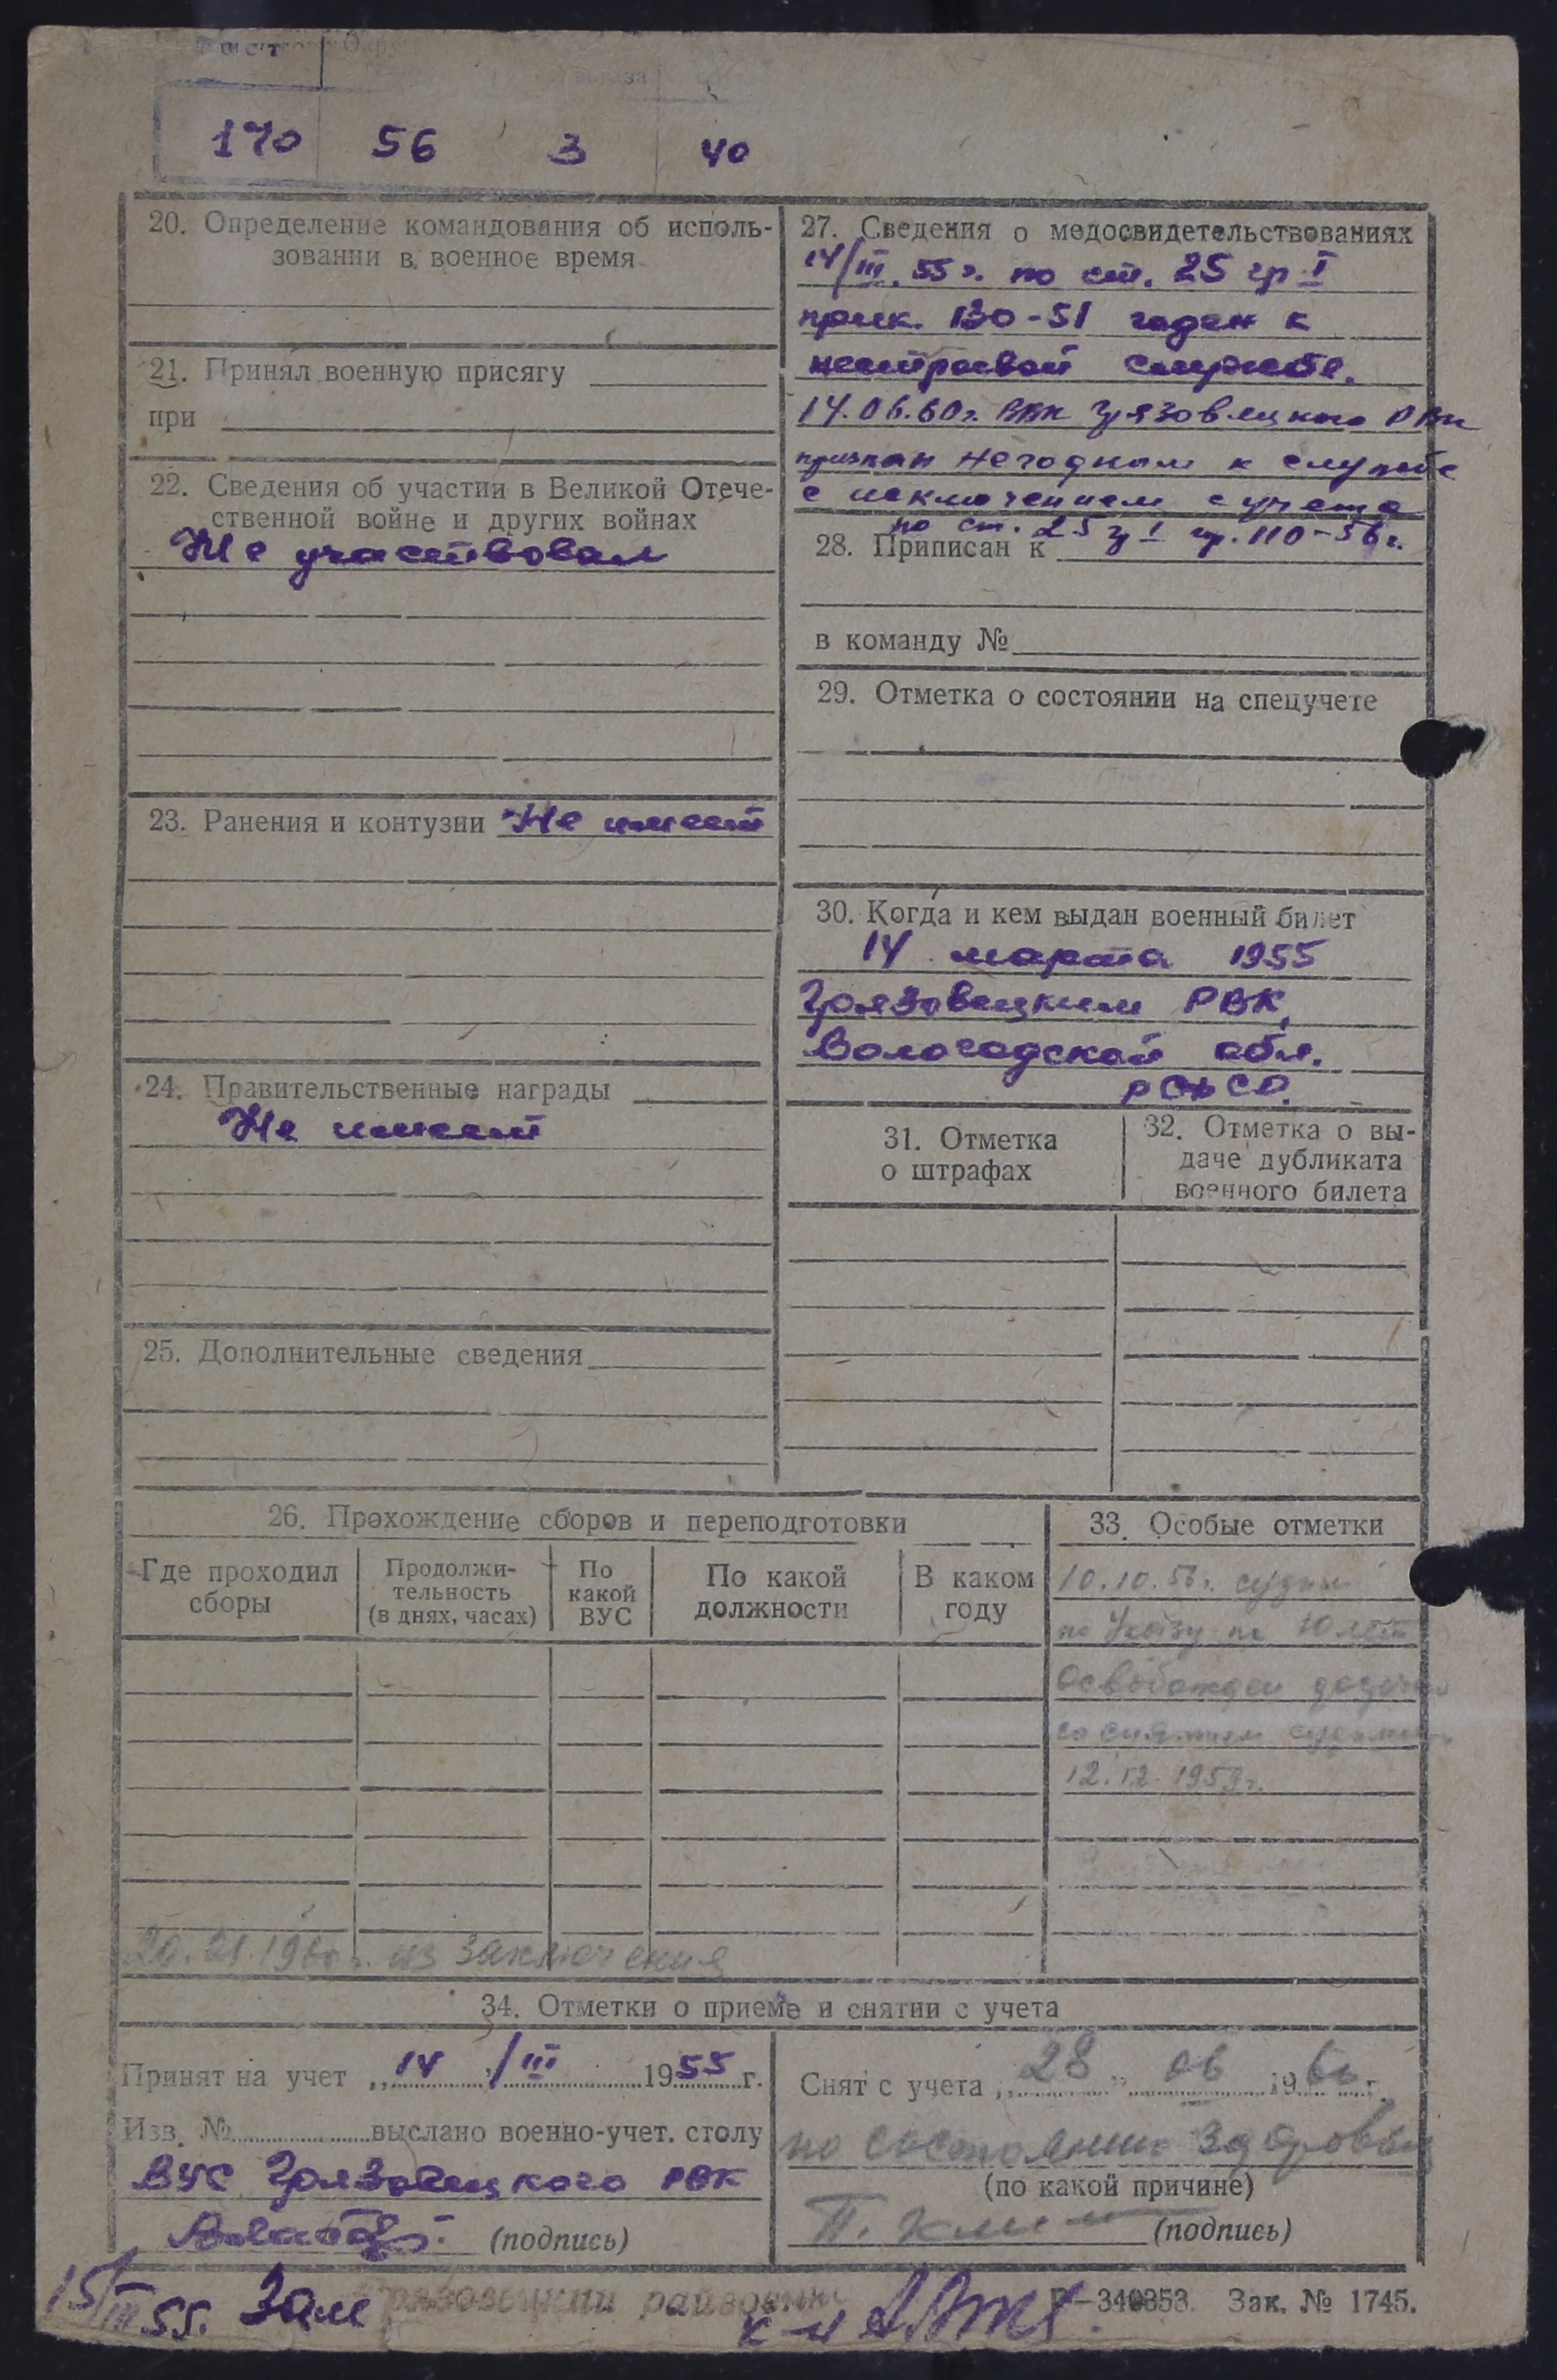 Рост
170 56 3 40
20. Определение командования об исполь-
зовании в военное время
21. Принял военную присягу
при
22. Сведения об участии в Великой Отече-
ственной войне и других войнах
Не участвовал
23. Ранения и контузии Не имеет
24. Правительственные награды
Не имеет
25. Дополнительные сведения
27. Сведения о медосвидетельствованиях
14/III.55 г. по ст. 25 гр I
прик. 130-51 годен к
нестроевой службе.
14.06.60г. ВВК Грязовецкого РВК
признан негодным к службе
с исключением с учета
по ст. 25 г I пр. 110-56г.
28. Приписан к
в команду №
29. Отметка о состоянии на спецучете
30. Когда и кем выдан военный билет
14 марта 1955
Грязовецким РВК,
Вологодской обл.
РСФСР.
31. Отметка
о штрафах
32. Отметка о вы-
даче дубликата
военного билета
26. Прохождение сборов и переподготовки
Где проходил
сборы
Продолжи-
тельность
(в днях, часах)
По
какой
ВУС
По какой
должности
В каком
году
33. Особые отметки
10.10.56г. судим
по Указу на 10 лет
Освобожден досрочно
со снятием судимости
12.12.1959г.
20.01.1960г. из заключения
34. Отметки о приеме и снятии с учета
Принят на учет „14"/III 1955 г.
Изв. № выслано военно-учет. столу
ВУС Грязовецкого РВК
(подпись)
Снят с учета „28" 06 1960 г.
по состоянию здоровья
(по какой причине)
(подпись)
15/III 55. Зам
Г—340353. Зак. № 1745.